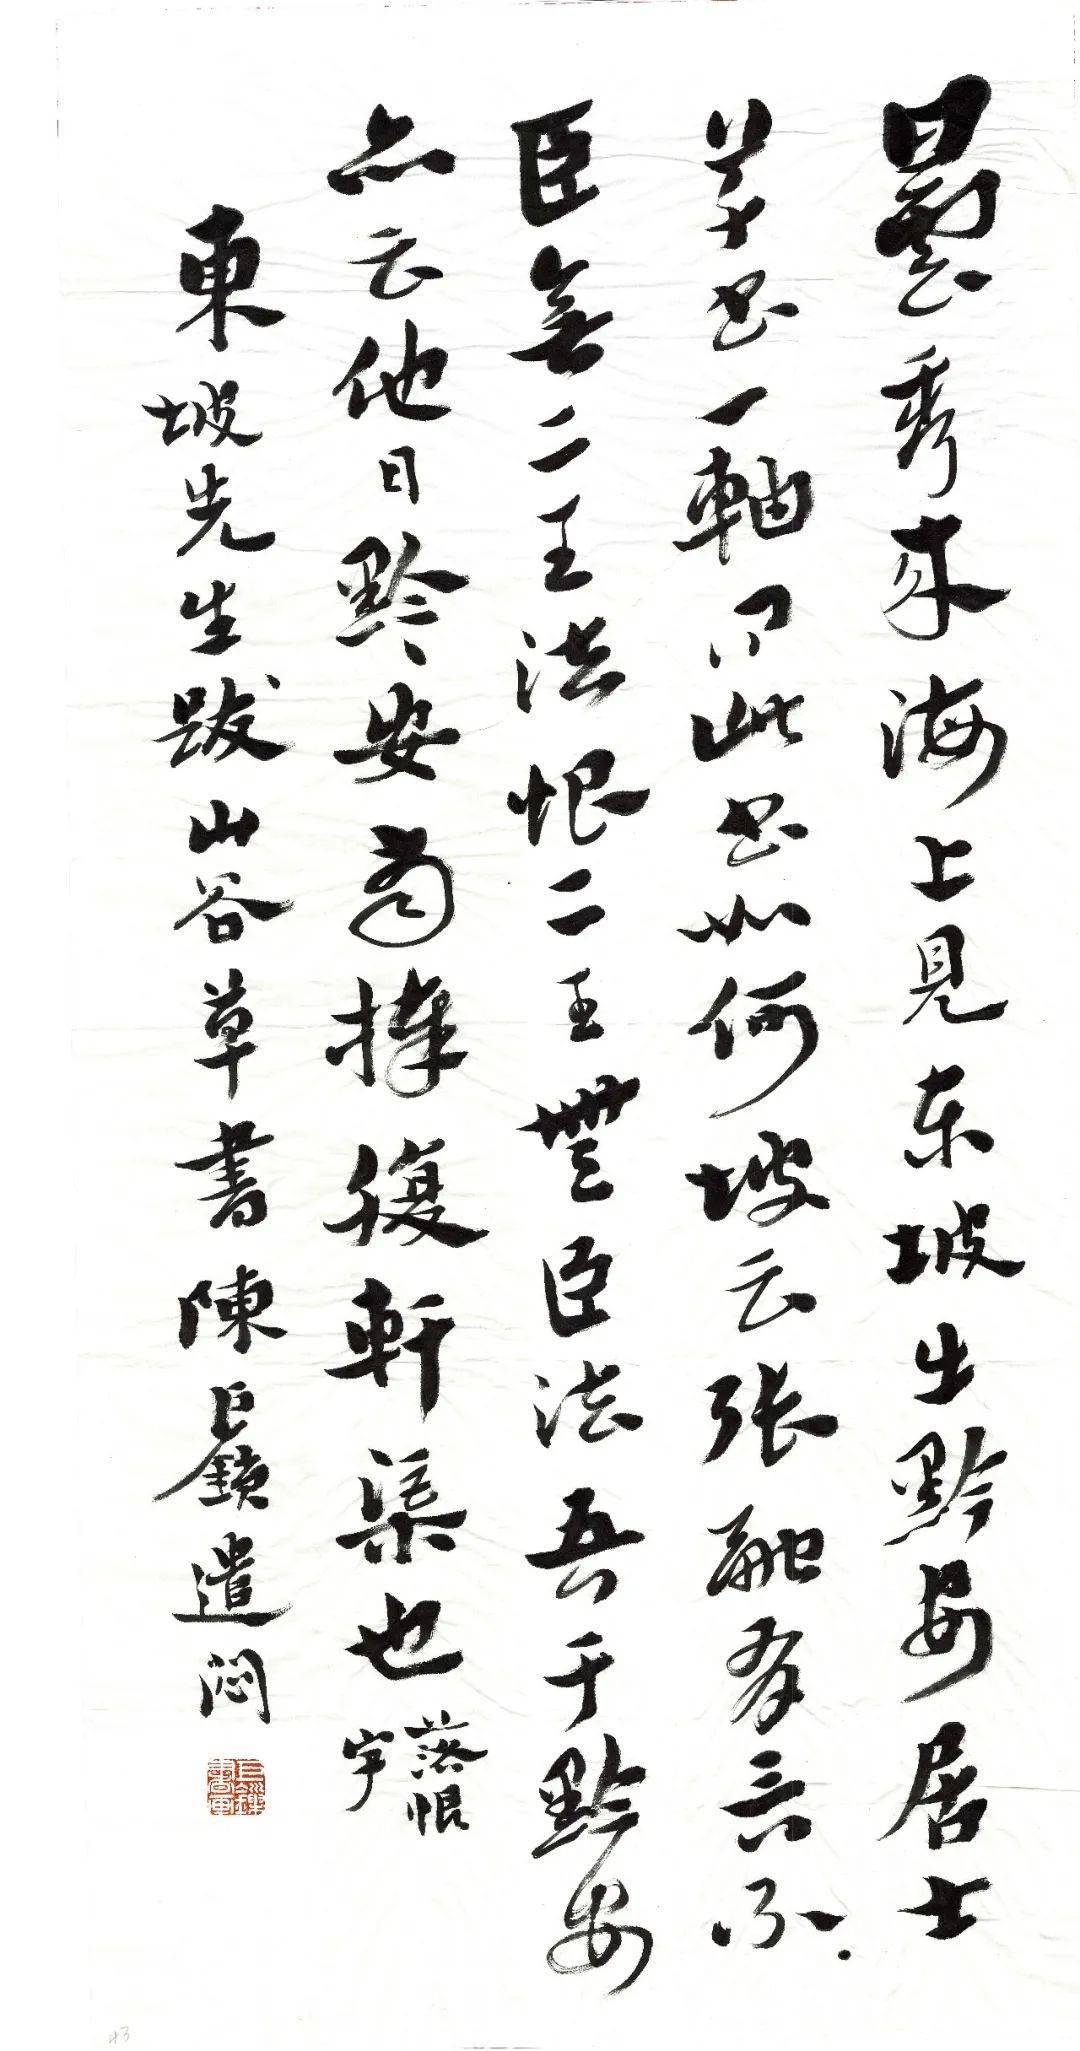 曇秀来海上見东坡出黔安居士
草书一軸问此书如何坡云張融有言不
臣無二王法恨二王無臣法吾于黔安
亦云他日黔安當捧腹軒渠也
落恨
字
東坡先生跋山谷草書陳巨鎖遣悶